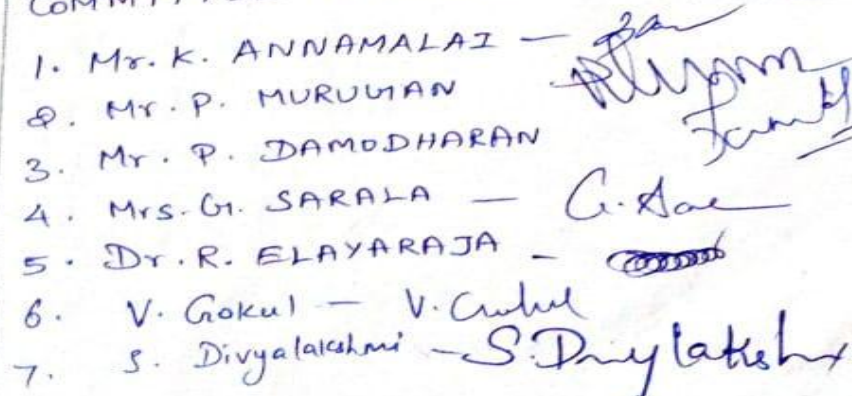 1. Mr. K. ANNAMALAI -
2. Mr. P. MURUGAN
3. Mr. P. DAMODHARAN
4. Mrs. G. SARALA - G. Sar
5. Dr. R. ELAYARAJA -
6. V. Gokul - V. Gokul
7. S. Divyalakshmi - S. Divylakshmi